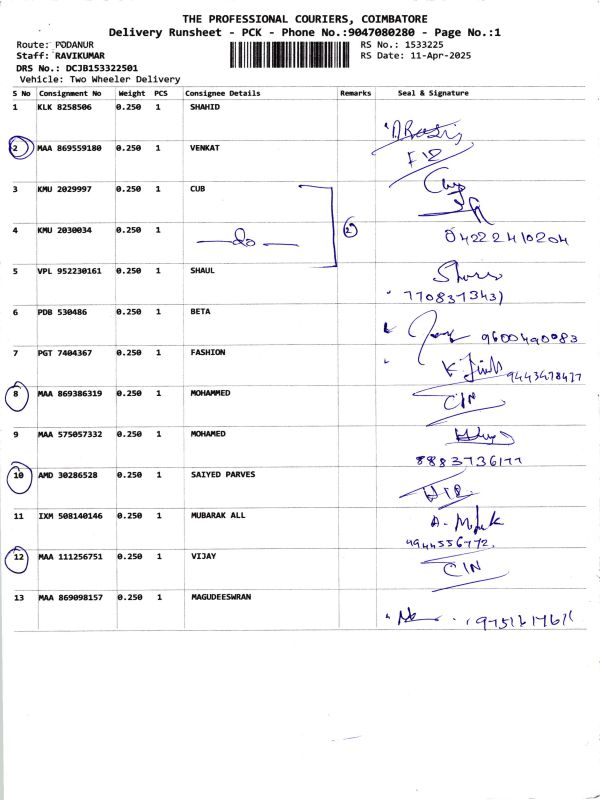 THE PROFESSIONAL COURIERS, COIMBATORE
Delivery Runsheet - PCK - Phone No.:9047080280 - Page No.:1
Route: PODANUR RS No.: 1533225
Staff: RAVIKUMAR RS Date: 11-Apr-2025
DRS No.: DCJB153322501
Vehicle: Two Wheeler Delivery
S No Consignment No Weight PCS Consignee Details Remarks Seal & Signature
1 KLK 8258506 0.250 1 SHAHID
2 MAA 869559180 0.250 1 VENKAT
3 KMU 2029997 0.250 1 CUB
4 KMU 2030034 0.250 1 —do— 2 04222410204
5 VPL 952230161 0.250 1 SHAUL
6 PDB 530486 0.250 1 BETA
9600490083
7 PGT 7404367 0.250 1 FASHION
8 MAA 869386319 0.250 1 MOHAMMED CIN
9 MAA 575057332 0.250 1 MOHAMED
8883736177
10 AMD 30286528 0.250 1 SAIYED PARVES
11 IXM 508140146 0.250 1 MUBARAK ALL
9944556772
12 MAA 111256751 0.250 1 VIJAY CIN
13 MAA 869098157 0.250 1 MAGUDEESWRAN